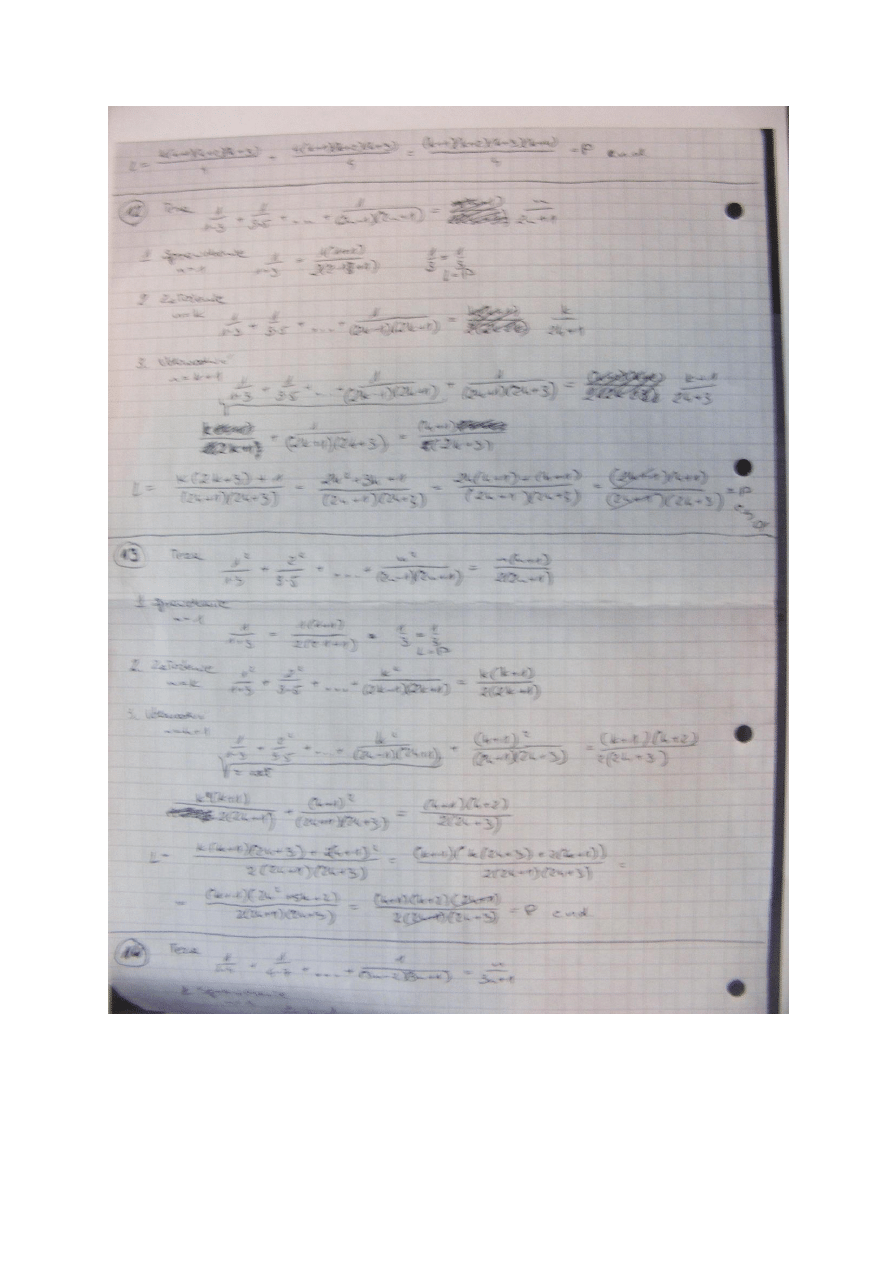 L = \frac{k(k+1)(k+2)(k+3)}{4} + \frac{4(k+1)(k+2)(k+3)}{4} = \frac{(k+1)(k+2)(k+3)(k+4)}{4} = P cnd
12 Teza \frac{1}{1·3} + \frac{1}{3·5} + ... + \frac{1}{(2n-1)(2n+1)} = \frac{n}{2n+1}
1 Sprawdzenie
n=1 \frac{1}{1·3} = \frac{1}{3} = \frac{1}{3} L=P
2 Założenie
n=k \frac{1}{1·3} + \frac{1}{3·5} + ... + \frac{1}{(2k-1)(2k+1)} = \frac{k}{2k+1}
3.
n=k+1 \frac{1}{1·3} + \frac{1}{3·5} + ... + \frac{1}{(2k-1)(2k+1)} + \frac{1}{(2k+1)(2k+3)} = \frac{k+1}{2k+3}
+ \frac{1}{(2k+1)(2k+3)} = \frac{(k+1)}{(2k+3)}
L = \frac{k(2k+3)+1}{(2k+1)(2k+3)} = \frac{2k²+3k+1}{(2k+1)(2k+3)} = \frac{2k(k+1)+(k+1)}{(2k+1)(2k+3)} = \frac{(2k+1)(k+1)}{(2k+1)(2k+3)} = P
13 Teza \frac{1²}{1·3} + \frac{2²}{3·5} + ... + \frac{n²}{(2n-1)(2n+1)} = \frac{n(n+1)}{2(2n+1)}
1 Sprawdzenie
n=1 \frac{1}{1·3} = \frac{1(1+1)}{2(2·1+1)} \frac{1}{3} = \frac{1}{3} L=P
2. Założenie
n=k \frac{1²}{1·3} + \frac{2²}{3·5} + ... + \frac{k²}{(2k-1)(2k+1)} = \frac{k(k+1)}{2(2k+1)}
3.
n=k+1 + \frac{2²}{3·5} + ... + \frac{k²}{(2k-1)(2k+1)} + \frac{(k+1)²}{(2k+1)(2k+3)} = \frac{(k+1)(k+2)}{2(2k+3)}
\frac{k(k+1)}{2(2k+1)} + \frac{(k+1)²}{(2k+1)(2k+3)} = \frac{(k+1)(k+2)}{2(2k+3)}
L = \frac{k(k+1)(2k+3)+2(k+1)²}{2(2k+1)(2k+3)} = \frac{(k+1)(k(2k+3)+2(k+1))}{2(2k+1)(2k+3)} =
= \frac{(k+1)(2k²+5k+2)}{2(2k+1)(2k+3)} = \frac{(k+1)(k+2)(2k+1)}{2(2k+1)(2k+3)} = P cnd
14 Teza \frac{1}{1·4} + \frac{1}{4·7} + ... + \frac{1}{(3n-2)(3n+1)} = \frac{n}{3n+1}
Sprawdzenie